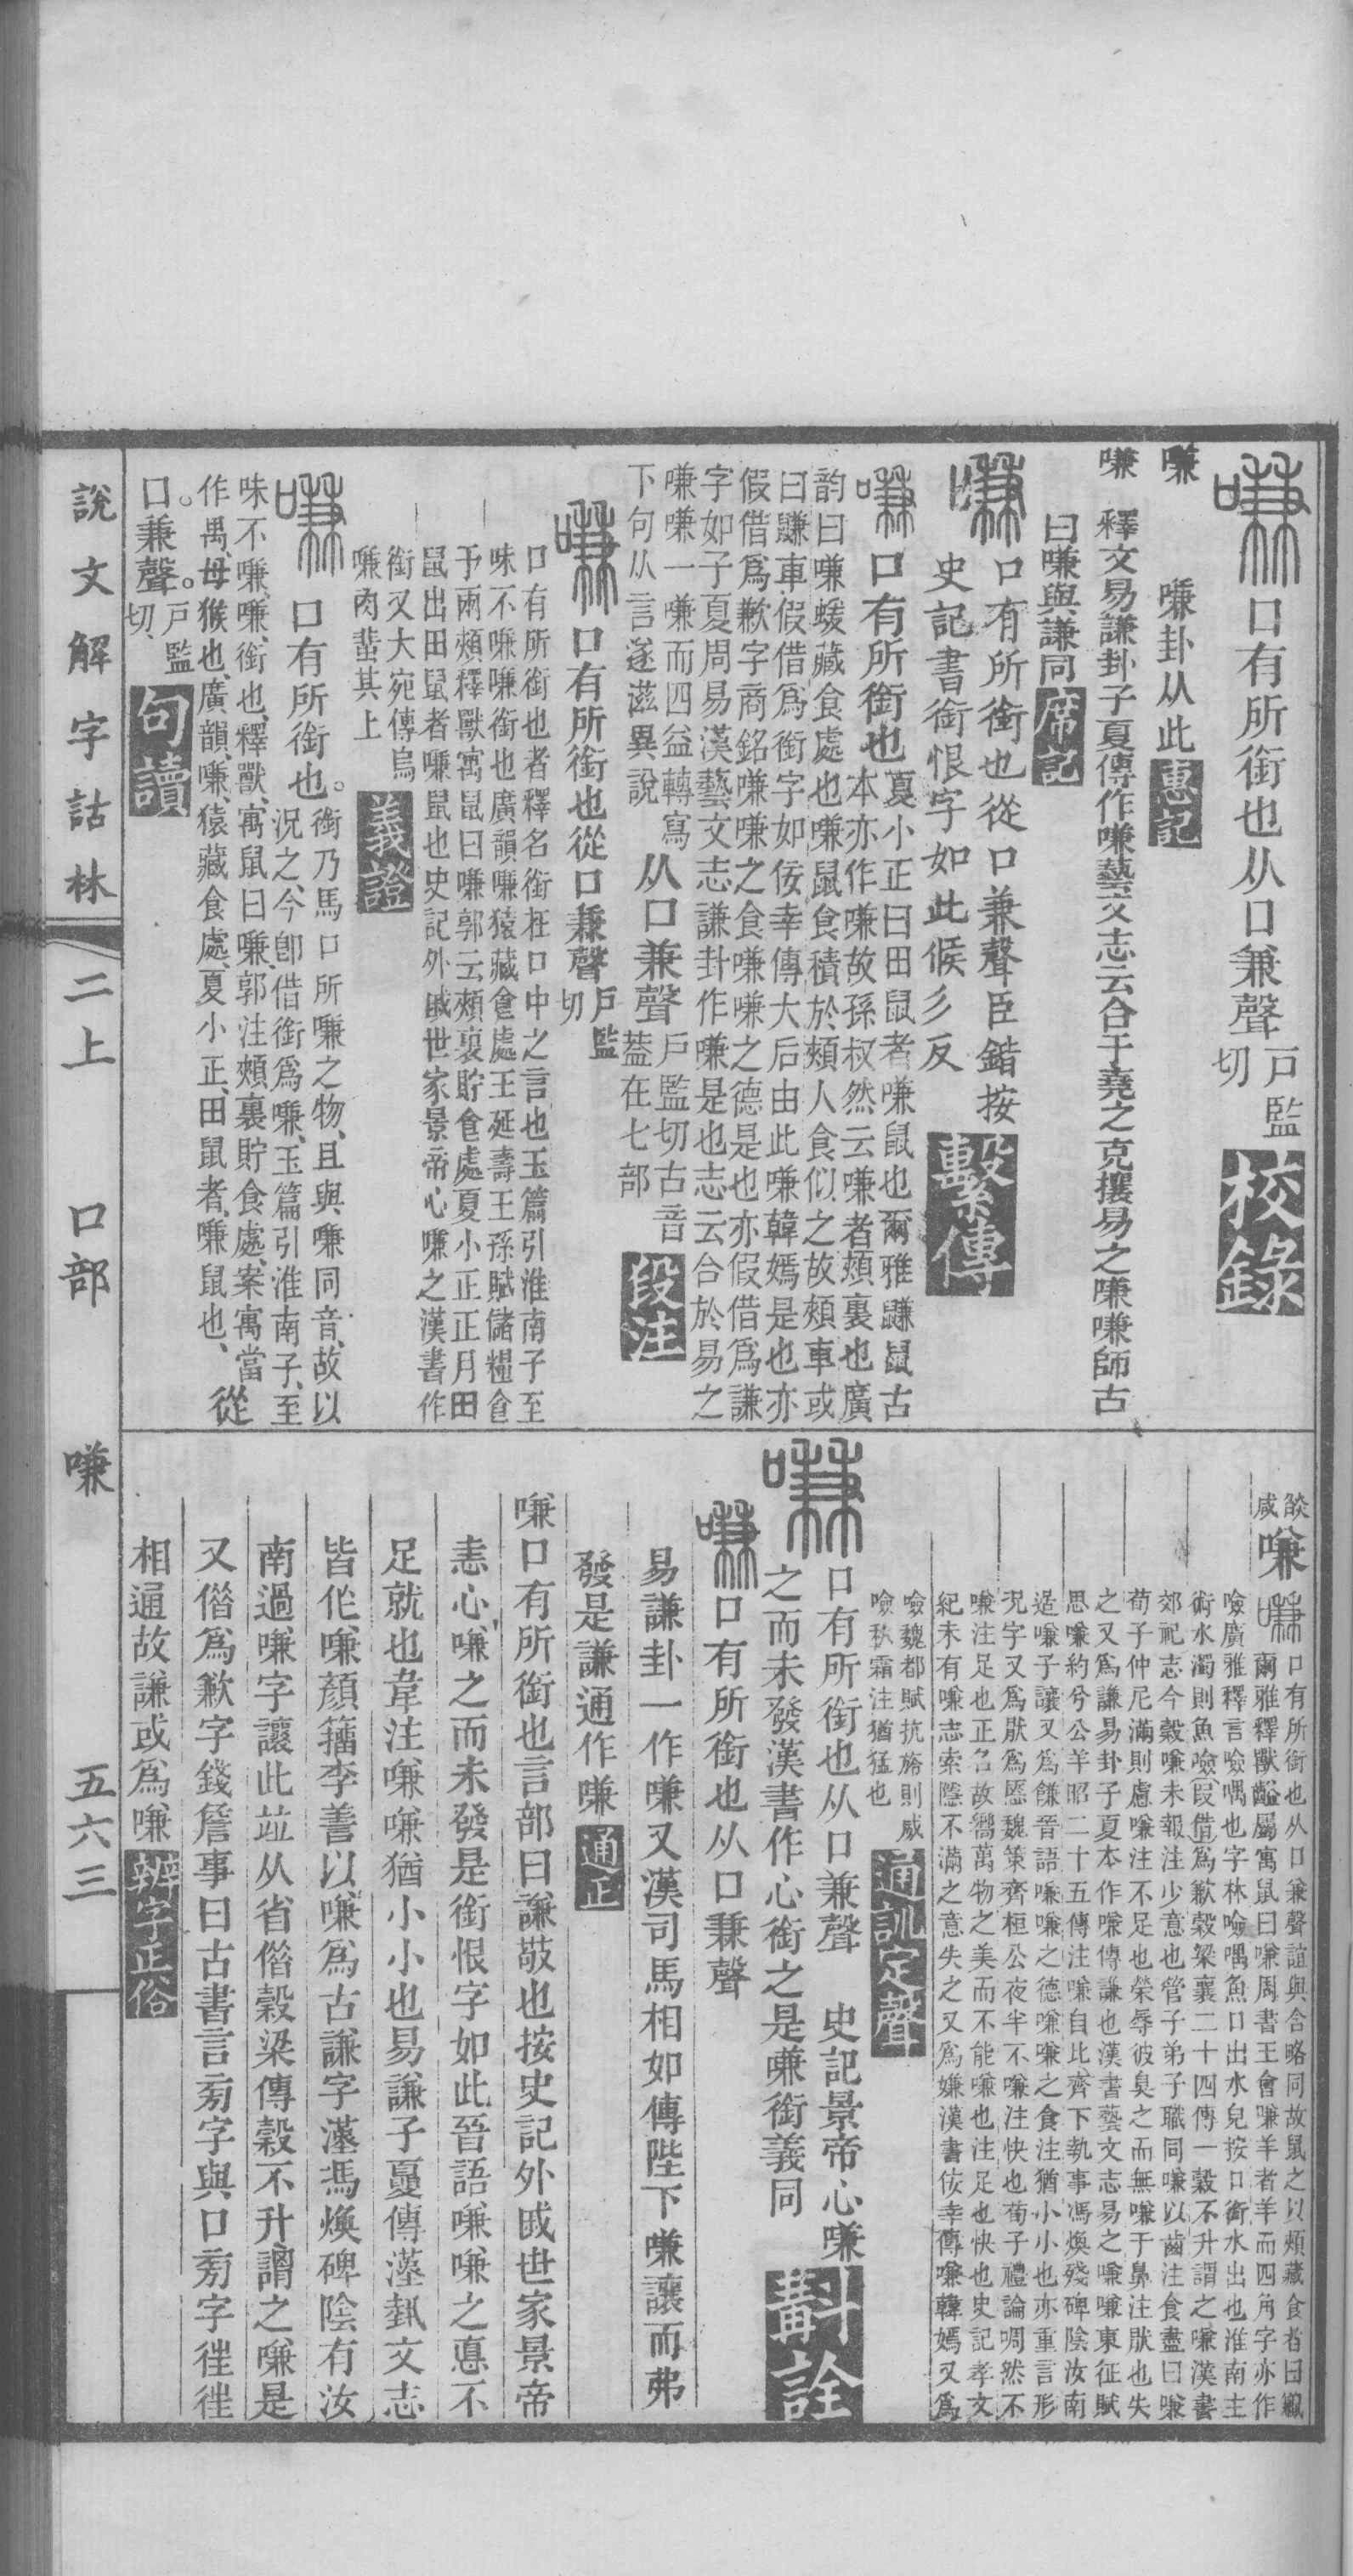 嗛口有所銜也从口兼聲
戶監切
校錄
嗛 嗛卦从此惠記
嗛 釋文易謙卦子夏傳作嗛藝文志云合于堯之克攘易之嗛嗛師古
曰嗛與謙同席記
嗛口有所銜也從口兼聲臣鍇按
史記書銜恨字如此候彡反
繫傳
嗛口有所銜也
夏小正曰田鼠者嗛鼠也爾雅鼸鼠古
本亦作嗛故孫叔然云嗛者頰裏也廣
韵曰嗛蝯藏食處也嗛鼠食積於頰人食似之故頰車或
曰鼸車假借爲銜字如佞幸傳大后由此嗛韓嫣是也亦
假借爲歉字商銘嗛嗛之食嗛嗛之德是也亦假借爲謙
字如子夏周易漢藝文志謙卦作嗛是也志云合於易之
嗛嗛一嗛而四益轉寫
下句从言遂滋異說
从口兼聲
戶監切古音
葢在七部
段注
嗛口有所銜也從口兼聲
戶監切
口有所銜也者釋名銜在口中之言也玉篇引淮南子至
味不嗛嗛銜也廣韻嗛猿藏食處王延壽王孫賦儲糧食
予兩頰釋獸寓鼠曰嗛郭云頰裏貯食處夏小正正月田
鼠出田鼠者嗛鼠也史記外戚世家景帝心嗛之漢書作
銜又大宛傳烏
嗛肉蜚其上
義證
嗛口有所銜也。
銜乃馬口所嗛之物、且與嗛同音、故以
況之、今卽借銜爲嗛、玉篇引淮南子、至
味不嗛、嗛、銜也、釋獸、寓鼠曰嗛、郭注頰裏貯食處、案寓當
作禺、母猴也、廣韻、嗛、猿藏食處、夏小正、田鼠者、嗛鼠也、
從
口。兼聲。
戶監切、
句讀
燄咸
嗛
嗛口有所銜也从口兼聲誼與含略同故鼠之以頰藏食者曰鼸
爾雅釋獸齸屬寓鼠曰嗛周書王會嗛羊者羊而四角字亦作
噞廣雅釋言噞喁也字林噞喁魚口出水皃按口銜水出也淮南主
術水濁則魚噞(叚借)爲歉穀梁襄二十四傳一穀不升謂之嗛漢書
郊祀志今穀嗛未報注少意也管子弟子職同嗛以齒注食盡曰嗛
荀子仲尼滿則慮嗛注不足也榮辱彼臭之而無嗛于鼻注猒也失
之又爲謙易卦子夏本作嗛傳謙也漢書藝文志易之嗛嗛東征賦
思嗛約兮公羊昭二十五傳注嗛自比齊下執事馮煥殘碑陰汝南
過嗛子讓又爲歉晉語嗛嗛之德嗛嗛之食注猶小小也亦重言形
況字又爲猒爲慊魏策齊桓公夜半不嗛注快也荀子禮論惆然不
嗛注足也正名故嚮萬物之美而不能嗛也注足也快也史記孝文
紀未有嗛志索隱不滿之意失之又爲嫌漢書佞幸傳嗛韓嫣又爲
噞魏都賦抗旍則威
噞秋霜注猶猛也
通訓定聲
嗛口有所銜也从口兼聲 史記景帝心嗛
之而未發漢書作心銜之是嗛銜義同
斠詮
嗛口有所銜也从口兼聲
易謙卦一作嗛又漢司馬相如傳陛下嗛讓而弗
發是謙通作嗛通正
嗛口有所銜也言部曰謙敬也按史記外戚世家景帝
恚心嗛之而未發是銜恨字如此晉語嗛嗛之悳不
足就也韋注嗛嗛猶小小也易謙子夏傳漢埶文志
皆作嗛顏籒李善以嗛爲古謙字漢馮煥碑陰有汝
南過嗛字讓此竝从省偕穀梁傳穀不升謂之嗛是
又偕爲歉字錢詹事曰古書言㫄字與口㫄字徃徃
相通故謙或爲嗛辨字正俗
說文解字詁林
二上
口部
嗛
五六三